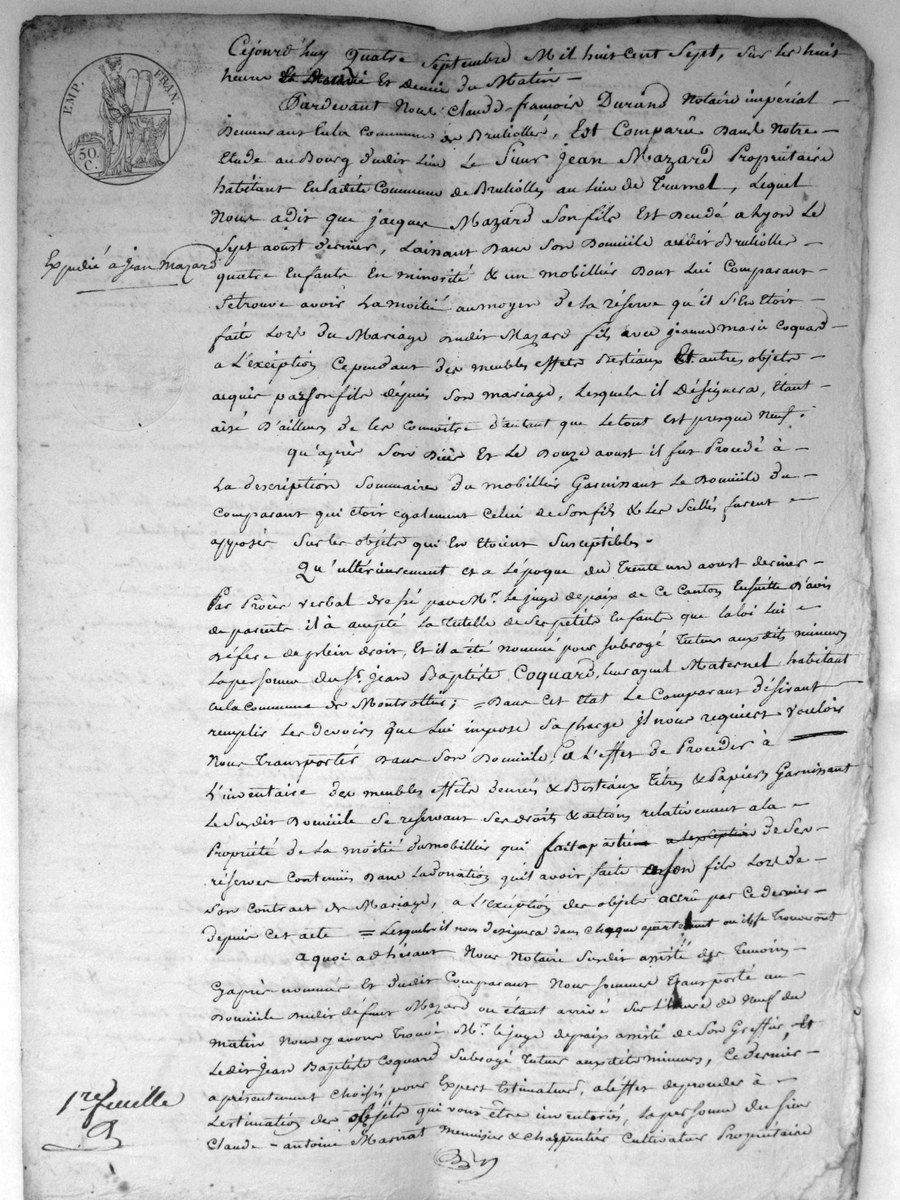 EMP. FRAN.
50. C.
Cejourd'huy quatre Septembre Mil huit cent Sept, Sur les huit
heures et demie du Matin -
Pardevant Nous Claude-françois Durand Notaire impérial -
Demeurant en la Commune de Brullolles, Est Comparû Dans Notre
Etude au Bourg dudit Lieu Le Sieur Jean Mazard Propriétaire
habitant En Ladite Commune de Brullolles au Lieu de Trumel, Lequel
Nous a dit que jacques Mazard Son fils Est Décédé a Lyon Le
Sept aoust dernier, Laissant Dans Son Domicile audit Brullolles
Expedié à Jean Mazard
quatre Enfants En minorité & un mobillier Dont Lui Comparant -
Se trouve avoir La moitié au moyen de La réserve qu'il S'En Etoit -
faite Lors du Mariage dudit Mazard fils avec jeanne marie Coquard -
a L'exeiption Cependant des meubles effets Bestiaux Et autres objets -
acquis par Son fils depuis Son mariage, Lesquels il Désignera, Etant -
aisé D'ailleurs de les Connoitre d'autant que Le tout Est presque Neuf.
qu'après Son Décès Et Le Douze aoust il fut Procedé à -
La description Sommaire du mobillier Garnissant Le Domicile du -
Comparant qui étoit également Celui de Son fils & Les Scellés furent -
apposés Sur les objets qui En étoient Susceptibles.
Qu'ultérieurement et a L'époque du Trente un aoust dernier -
Par Procès verbal dressé par Mr. Le juge de paix de Ce Canton Ensuitte D'avis
de parents il à accepté La Tutelle de Ses petits Enfants que la loi Lui -
Défère de plein droit, Et il à été nommé pour Subrogé Tuteur aux dits mineurs
La personne du Sr. Jean Baptiste Coquard, Leur ayeul Maternel habitant
en la Commune de Montrottier; = Dans Cet Etat Le Comparant Désirant -
remplir Les devoirs que Lui impose Sa charge il nous requiert vouloir
Nous Transporter Dans Son Domicile à L'effet de Proceder à
L'inventaire des meubles effets denrées & Bestiaux Titres & Papiers Garnissant
Le Susdit Domicile Se réservant Ses droits & actions relativement a la -
Propriété de La moitié du mobillier qui fait partie de Ses -
réserves Contenues Dans La donation qu'il avoit faite a Son fils Lors de -
Son Contract de Mariage, a L'exeiption des objets accrû par Ce dernier -
depuis Cet acte = Lesquels il nous designera dans chaque apartement ou ils Se Trouveront
a quoi adhésant Nous Notaire Susdit assisté des Temoins -
Cy après nommés Et dudit Comparant Nous Sommes Transporté au -
Domicile dudit défunt Mazard ou étant arrivé Sur L'heure de Neuf du
matin Nous y avons Trouvé Mr. Le juge de paix assisté de Son Greffier, Et
Ledit Jean Baptiste Coquard Subrogé Tuteur aux dits mineurs, Ce dernier -
a présentement Choisi pour Expert Estimateur, a L'éffet de proceder à -
L'estimation des objets qui vont être inventoriés, La personne du Sieur
Claude-antoine Marnat Menuisier & charpentier Cultivateur Propriétaire
1re feuille